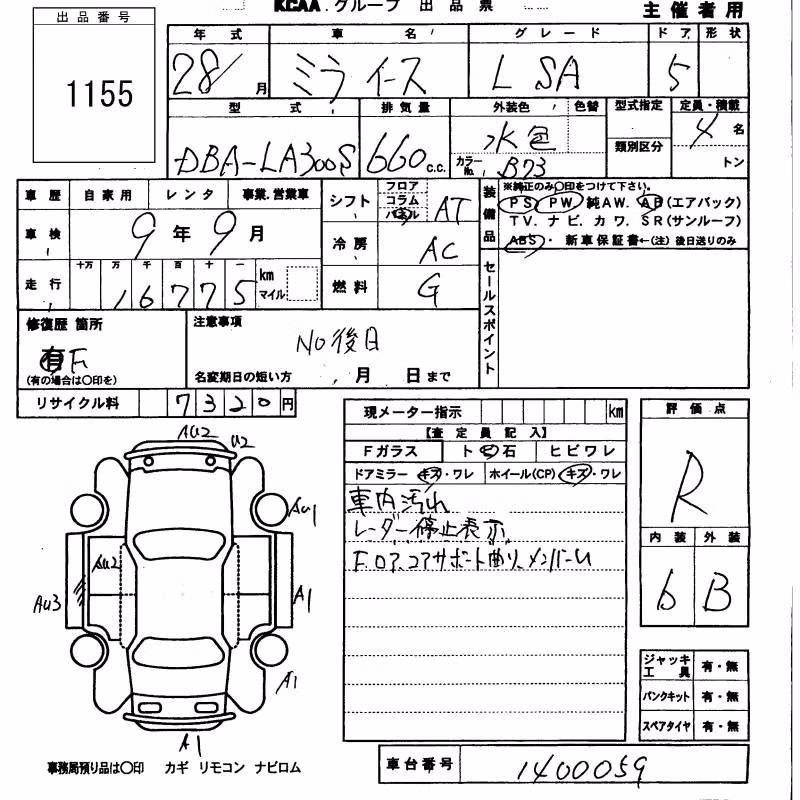 KCAA.グループ 出品票
主催者用
出品番号
1155
年式 車名 グレード ドア 形状
28/ 月 ミライース L SA 5
型式 排気量 外装色 色替 型式指定 定員・積載
DBA-LA300S 660 c.c. 水色 4 名
カラーNo. B73 類別区分 トン
車歴 自家用 レンタ 事業.営業車
車検 9年9月
走行 十万 万 千 百 十 一
16775 km マイル
シフト フロア コラム パネル AT
冷房 AC
燃料 G
装備品 ※純正のみ○印をつけて下さい。
PS PW 純AW. AB(エアバック)
TV. ナビ. カワ. SR(サンルーフ)
ABS・ 新車保証書←(注)後日送りのみ
セールスポイント
修復歴 箇所
有 F
(有の場合は○印を)
注意事項
NO後日
名変期日の短い方 月 日まで
リサイクル料 7320円
現メーター指示 km
【査定員記入】
Fガラス ト 石 ヒビワレ
ドアミラー キズ・ワレ ホイール(CP) キズ・ワレ
車内汚れ
レーダー停止表示
F.ロア.コアサポート曲り、メンバーU
評価点
R
内装 外装
b B
ジャッキ工具 有・無
パンクキット 有・無
スペアタイヤ 有・無
AU2 U2
AU1
AU2
AU3 A1
A1
A1
事務局預り品は○印 カギ リモコン ナビロム
車台番号 1400059